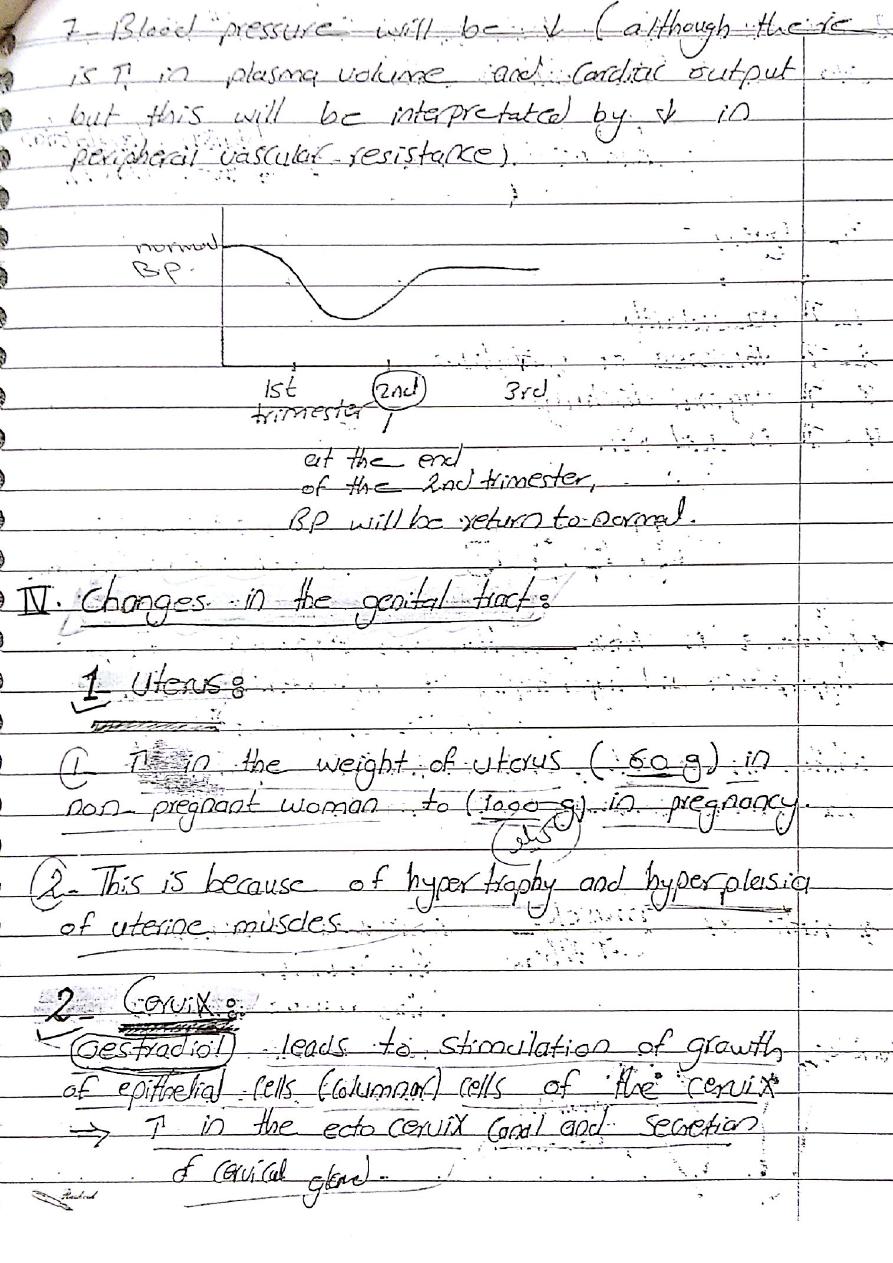 7- Blood "pressure" will be ↓ (although there
is ↑ in plasma volume and Cardiac output
but this will be interpretated by ↓ in
peripheral vascular resistance).
normal
BP.
1st
trimester
2nd
3rd
at the end
of the 2nd trimester,
BP will be return to normal.
IV. Changes in the genital tract:
1 Uterus:
1- ↑ in the weight of uterus (60 g) in
non pregnant woman to (1000 g) in pregnancy.
كيلو
2- This is because of hypertrophy and hyperplasia
of uterine muscles
2- Cervix:
Oestradiol leads to stimulation of growth
of epithelial cells (columnar) cells of the cervix
→ ↑ in the ecto cervix canal and secretion
of cervical gland.